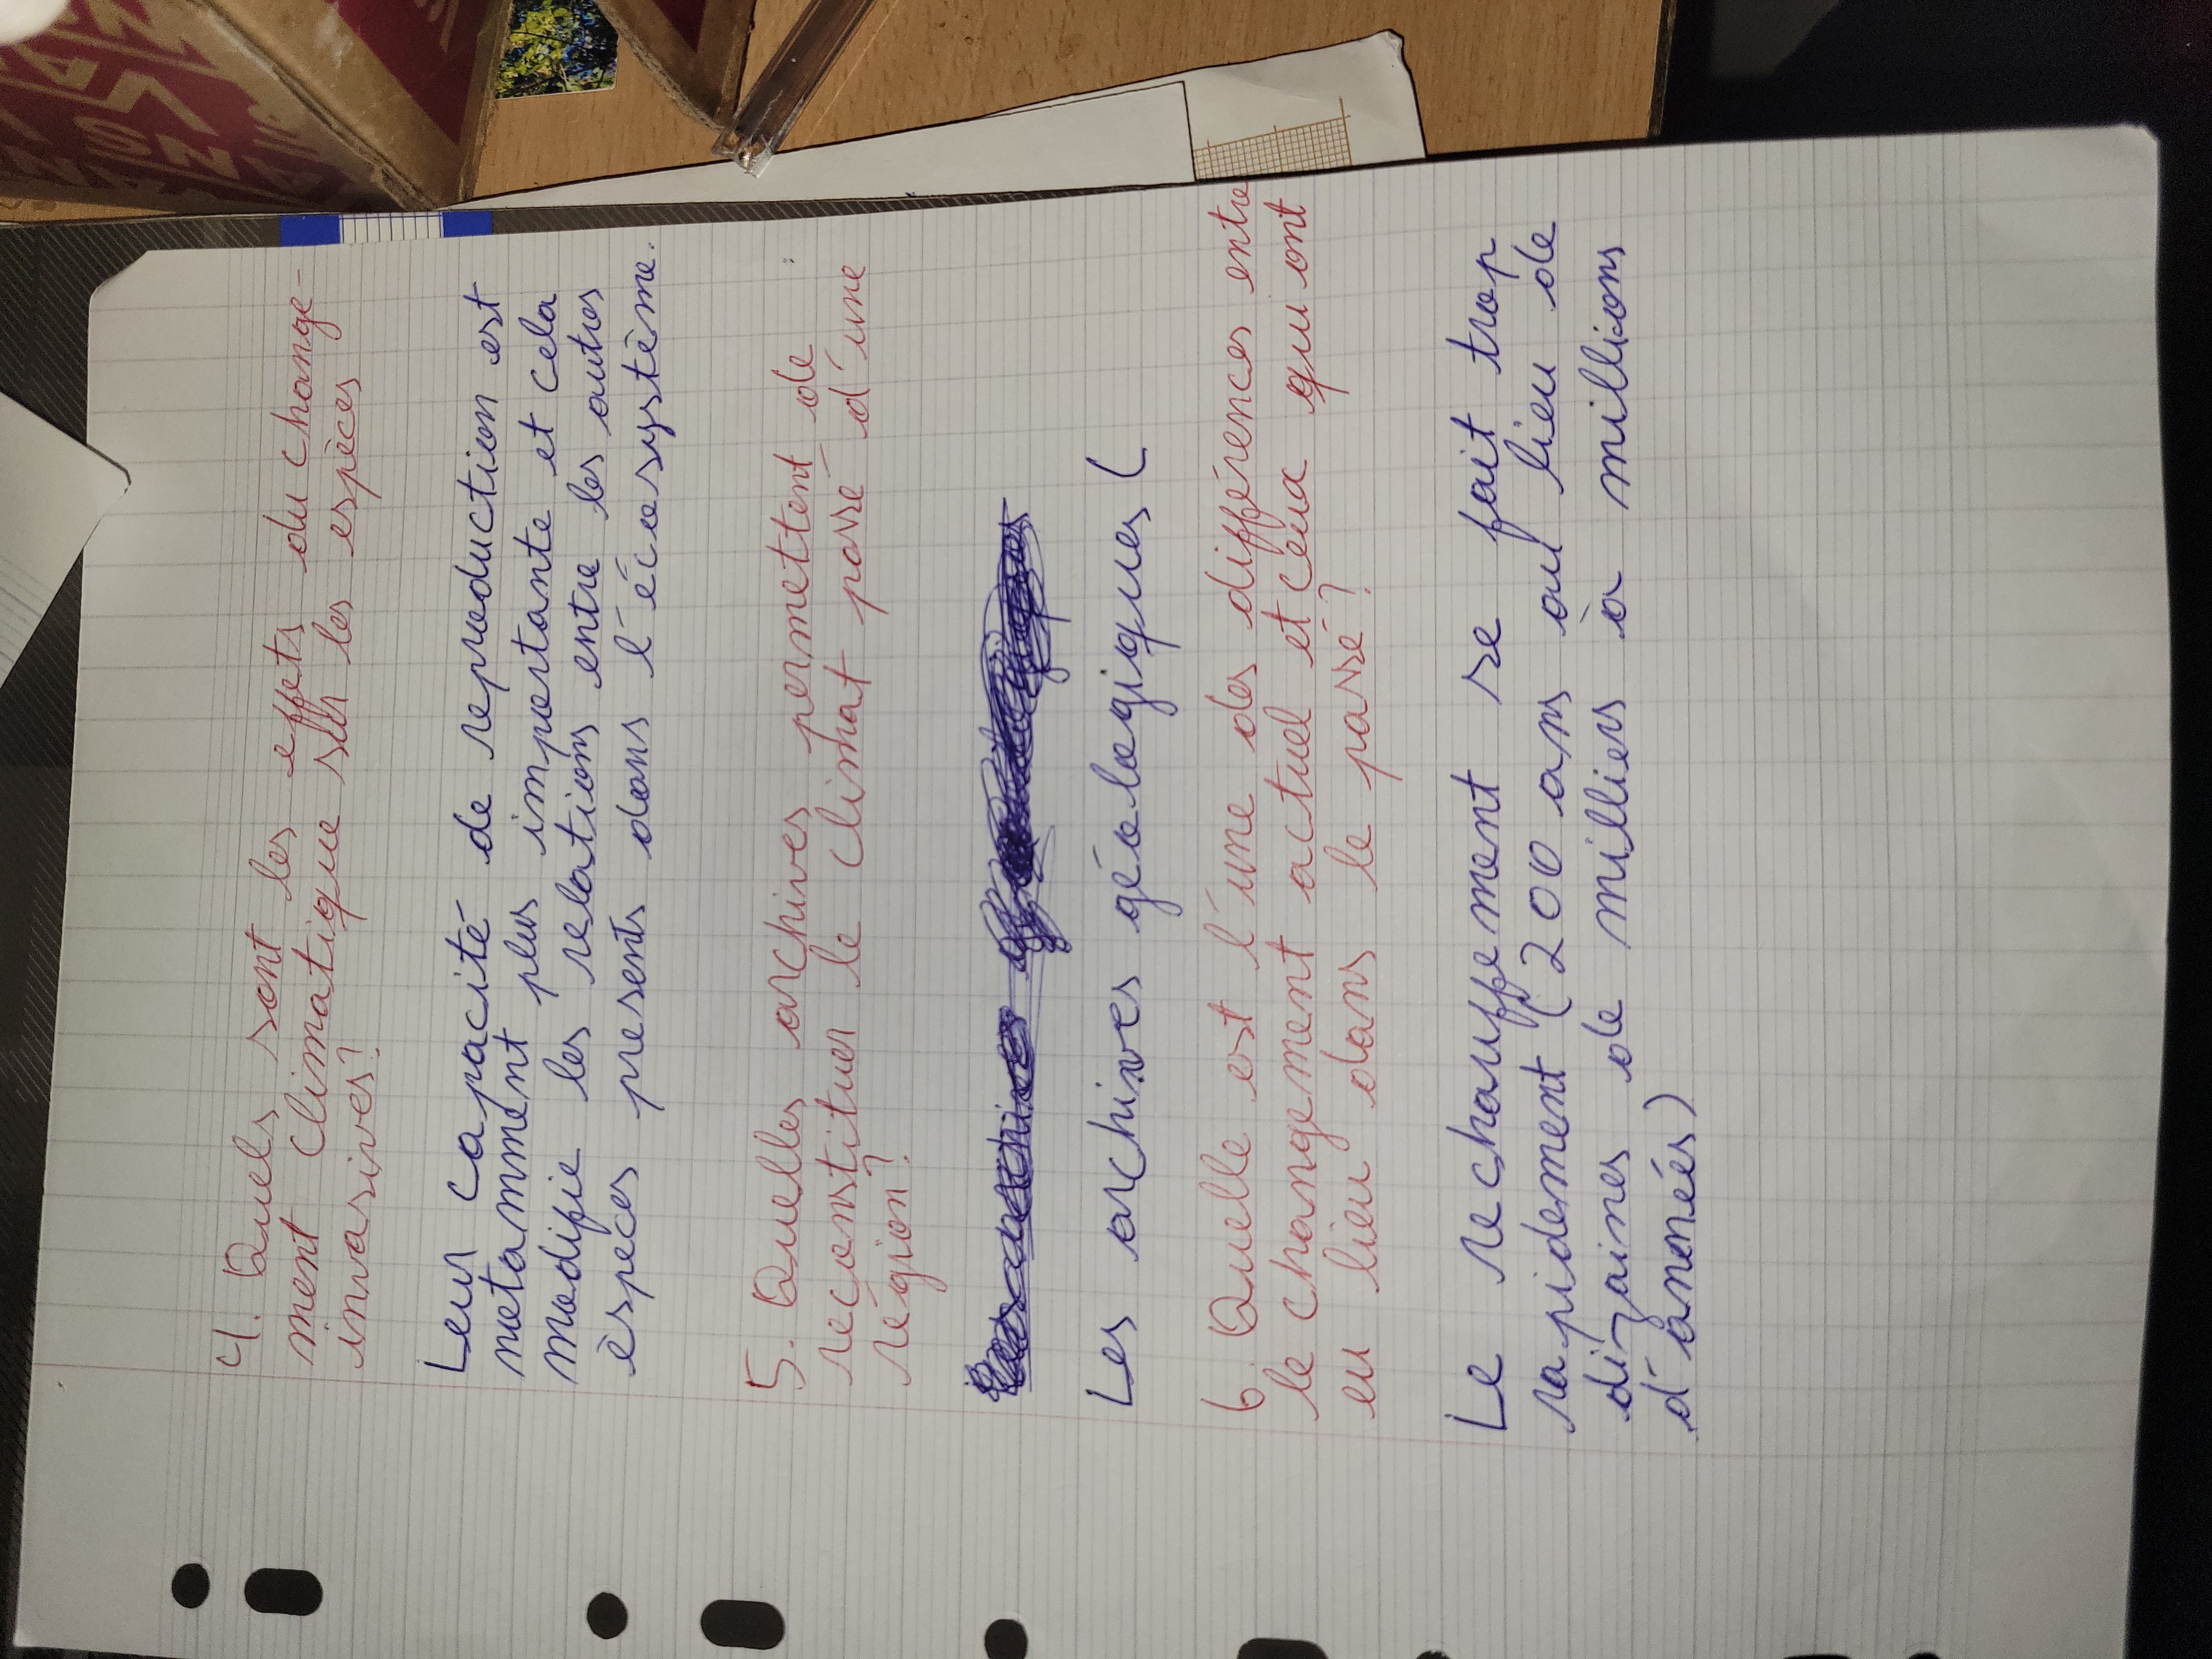 4. Quels sont les effets du change-
ment climatique sur les espèces
invasives?
Leur capacité de reproduction est
notamment plus importante et cela
modifie les relations entre les autres
èspèces presents dans l'écosystème.
5. Quelles archives permettent de
reconstituer le climat passé d'une
région?
Les archives géologiques (
6. Quelle est l'une des différences entre
le changement actuel et ceux qui ont
eu lieu dans le passé?
Le rechauffement se fait trop
rapidement (200 ans au lieu de
dizaines de milliers à millions
d'années)